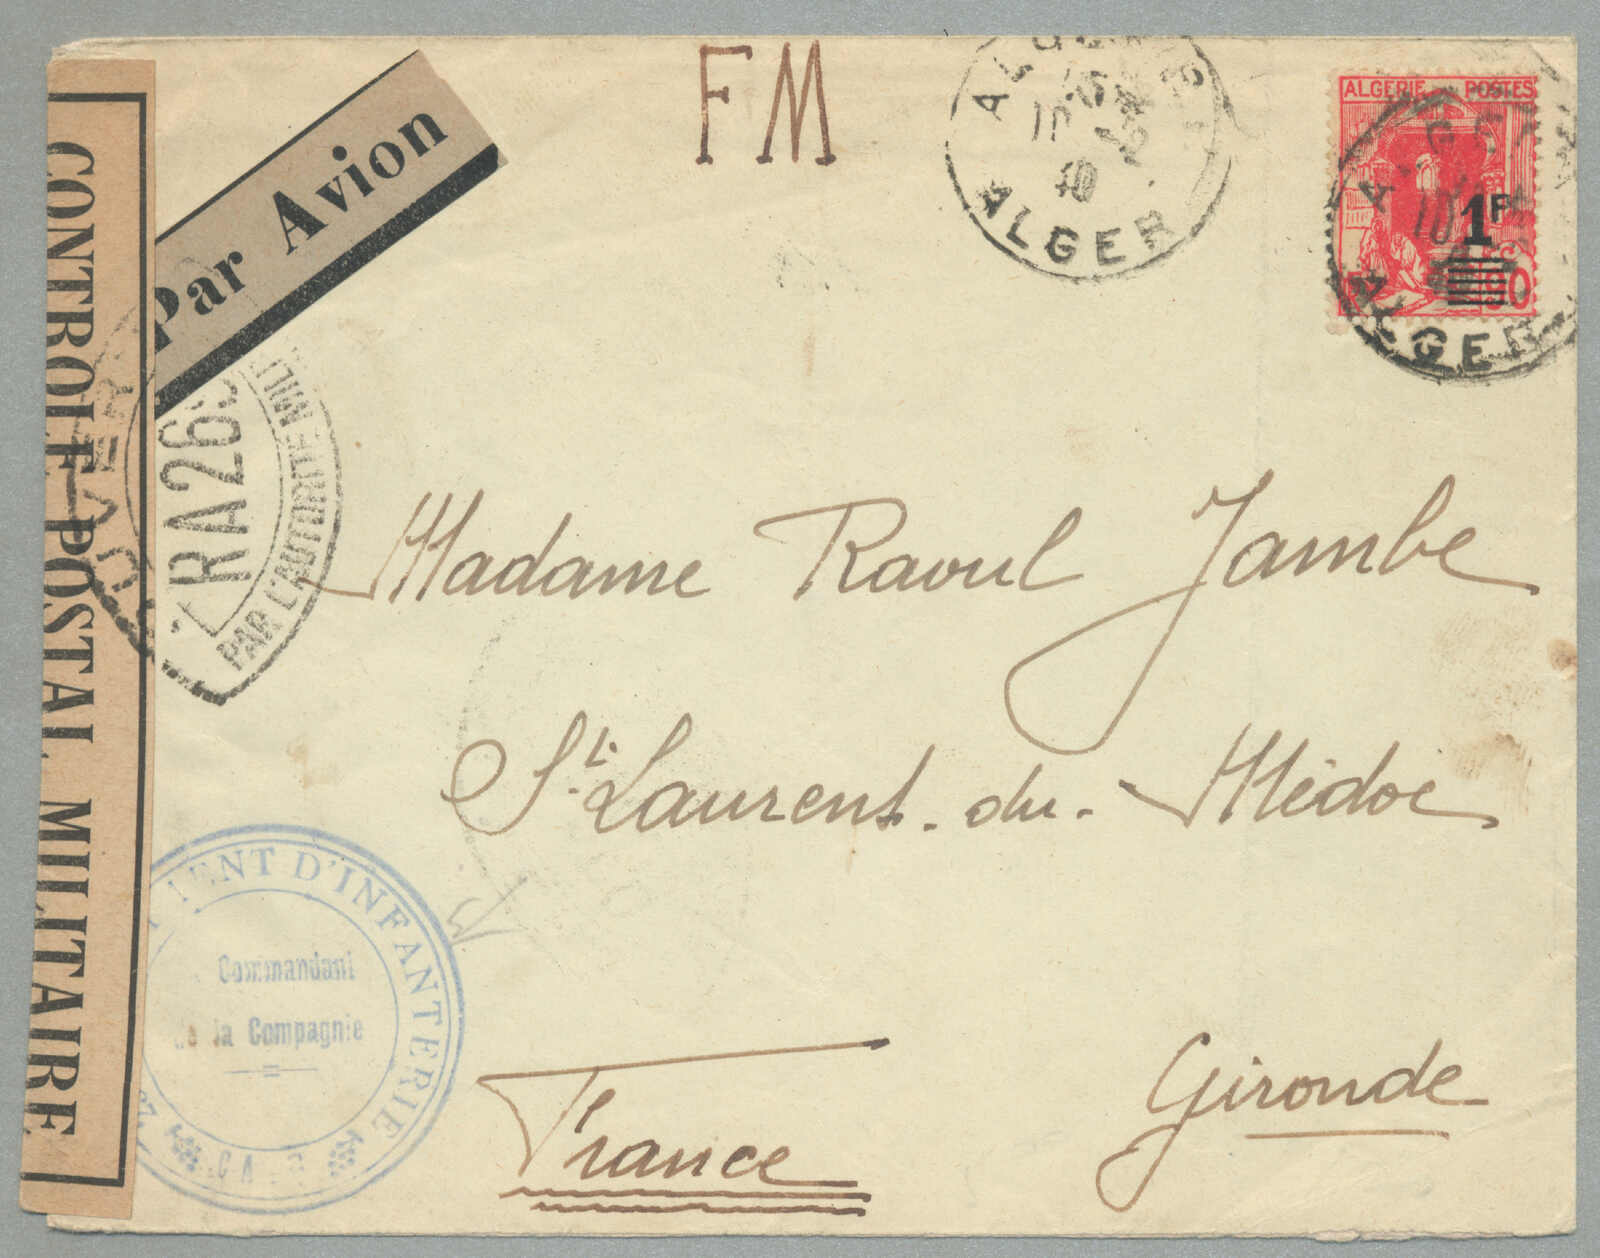 FM
ALGER
10
40
ALGER
ALGERIE POSTES
1F
90
ALGER
Par Avion
CONTROLE POSTAL MILITAIRE
OUVERT
PAR L'AUTORITÉ MILIT
RA26
Madame Raoul Jambe
St. Laurent-du-Médoc
Gironde
France
MENT D'INFANTERIE
Commandant
de la Compagnie